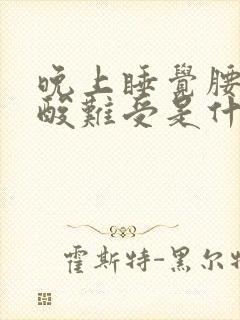 晚上睡覺腰
酸難受是什
霍斯特-黑尔